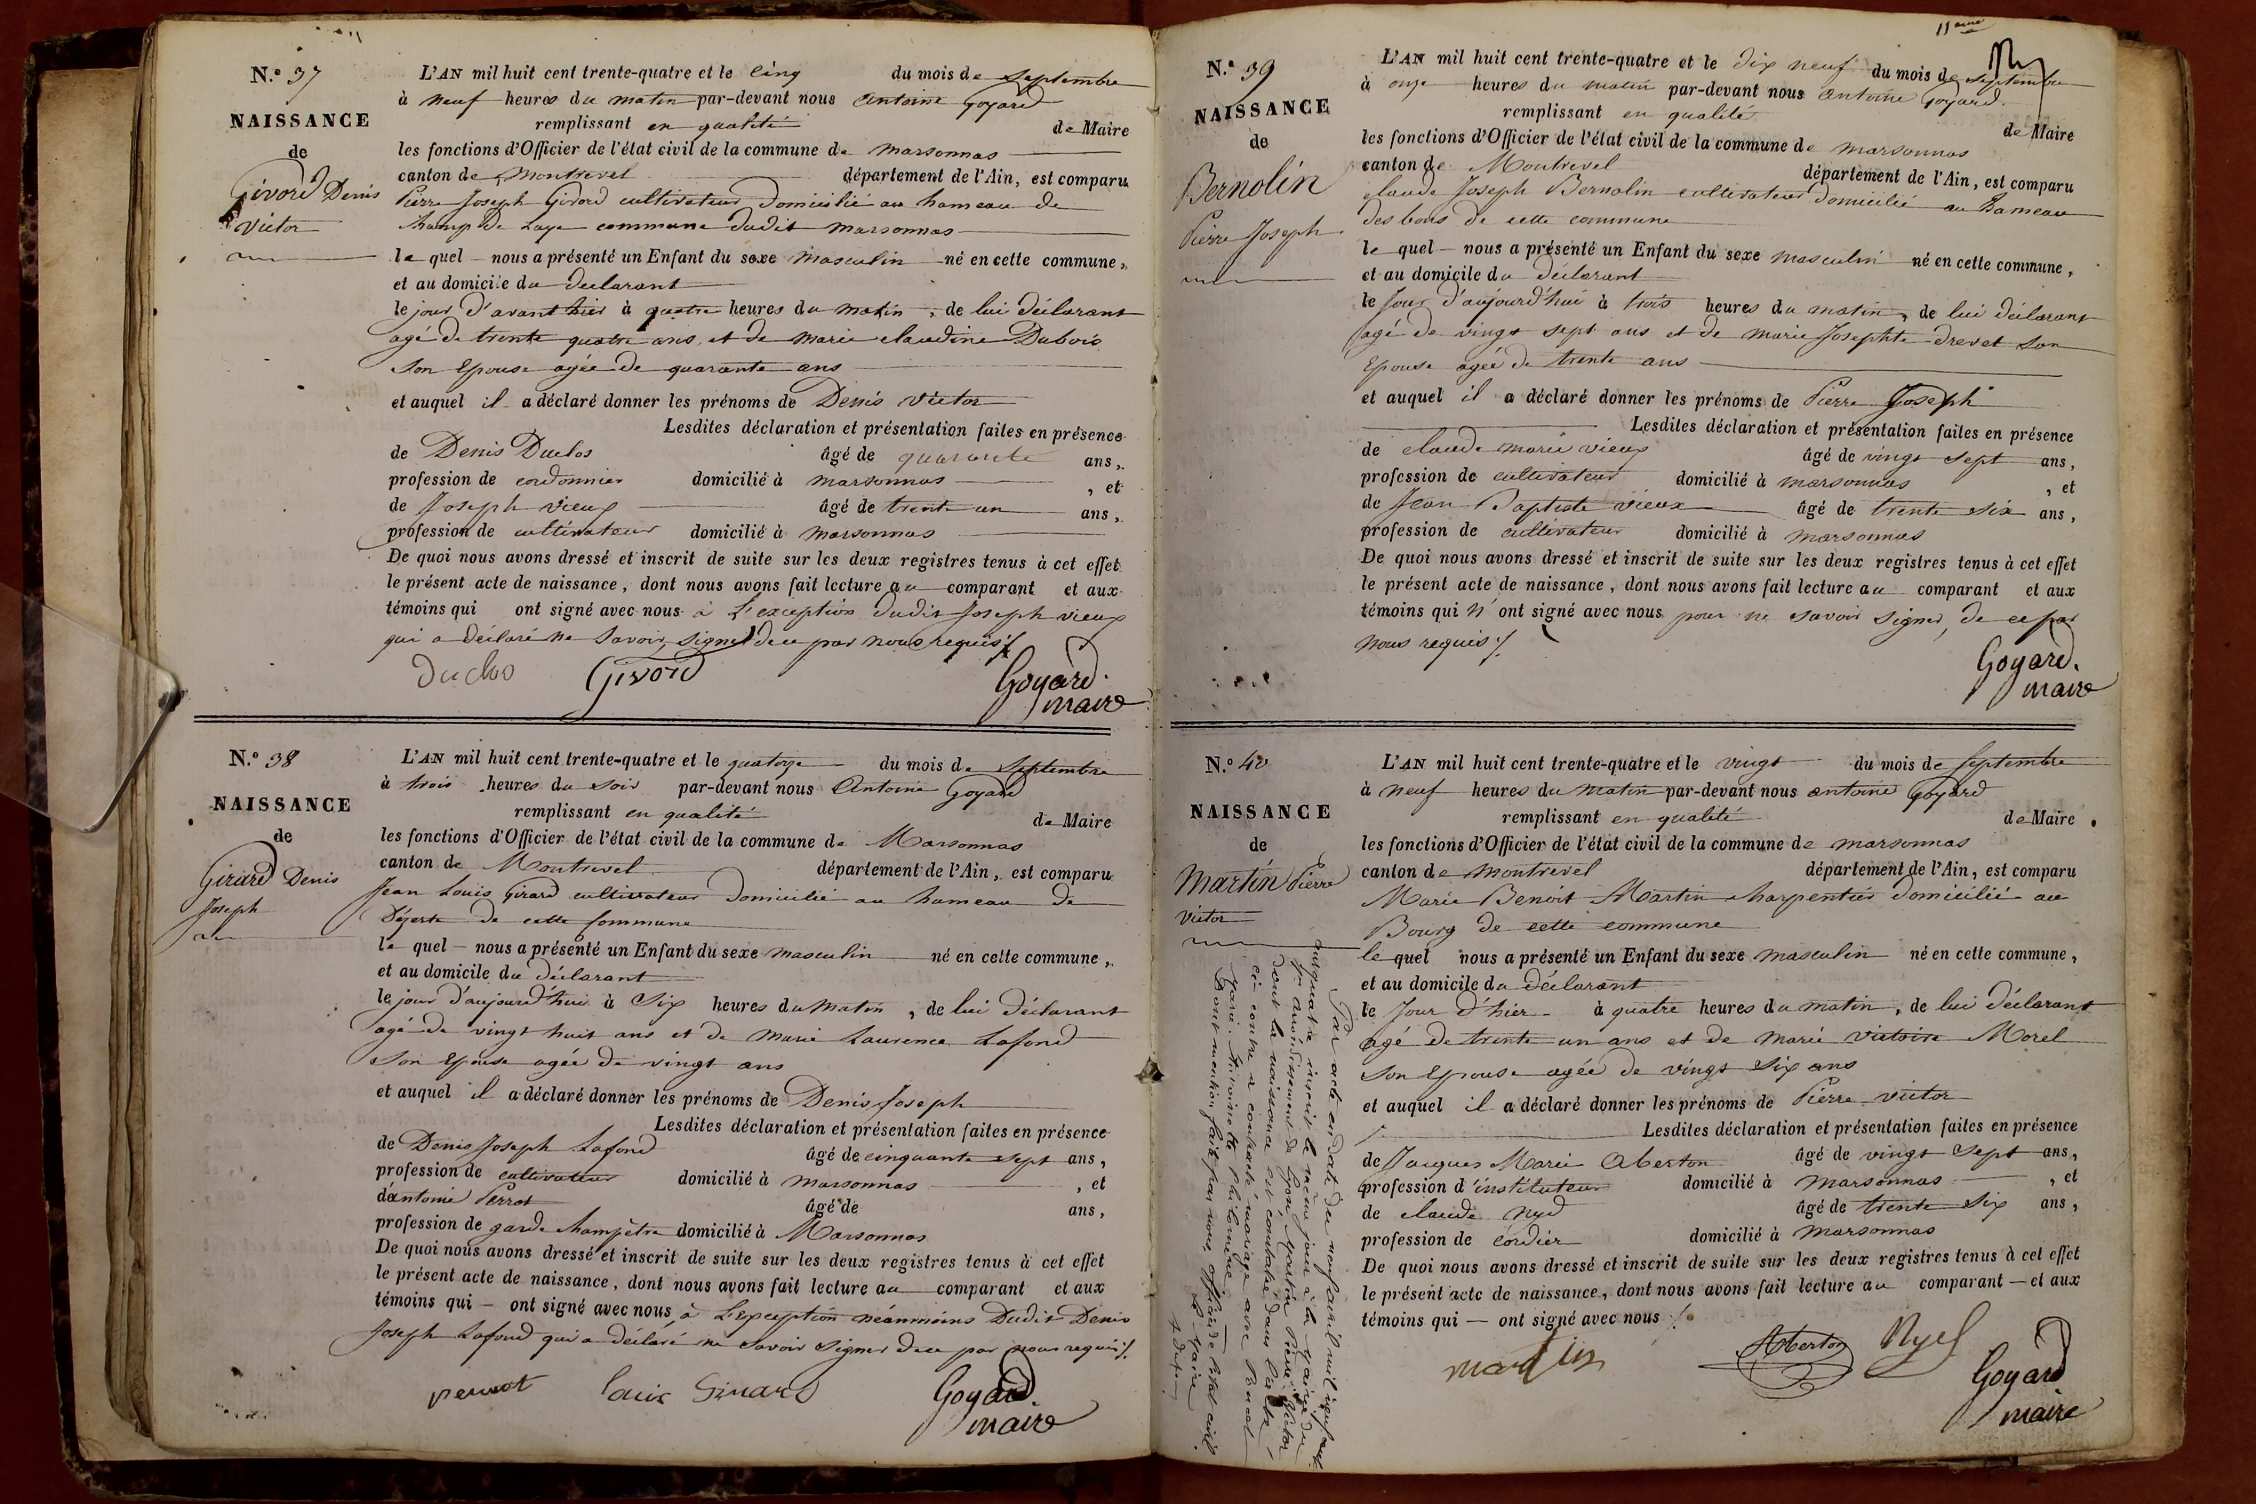 N.º 37
NAISSANCE
de
Givord Denis
Victor
L'AN mil huit cent trente-quatre et le cinq du mois de Septembre
à neuf heures du matin par-devant nous Antoine Goyard
remplissant en qualité de Maire
les fonctions d'Officier de l'état civil de la commune de Marsonnas
canton de Montrevel département de l'Ain, est comparu
Pierre Joseph Givord cultivateur domicilié au hameau de
champ de Laye commune dudit marsonnas
le quel nous a présenté un Enfant du sexe masculin né en cette commune,
et au domicile du déclarant
le jour d'avant hier à quatre heures du matin, de lui déclarant
agé de trente quatre ans, et de marie claudine Dubois
son Epouse agée de quarante ans
et auquel il a déclaré donner les prénoms de Denis Victor
Lesdites déclaration et présentation faites en présence
de Denis Duclos âgé de quarante ans,
profession de cordonnier domicilié à marsonnas , et
de Joseph vieux âgé de trente un ans,
profession de cultivateur domicilié à marsonnas
De quoi nous avons dressé et inscrit de suite sur les deux registres tenus à cet effet
le présent acte de naissance, dont nous avons fait lecture au comparant et aux
témoins qui ont signé avec nous à L'exception dudit Joseph vieux
qui a déclaré ne savoir signer de ce par nous requis ./.
Duclos Givord Goyard
maire
N.º 38
NAISSANCE
de
Girard Denis
Joseph
L'AN mil huit cent trente-quatre et le quatorze du mois de Septembre
à trois heures du soir par-devant nous Antoine Goyard
remplissant en qualité de Maire
les fonctions d'Officier de l'état civil de la commune de Marsonnas
canton de Montrevel département de l'Ain, est comparu
Jean Louis Girard cultivateur domicilié au hameau de
de cette commune
le quel nous a présenté un Enfant du sexe masculin né en cette commune,
et au domicile du déclarant
le jour d'aujourd'hui à Six heures du matin, de lui déclarant
agé de vingt huit ans et de Marie Laurence Lafond
son Epouse agée de vingt ans
et auquel il a déclaré donner les prénoms de Denis Joseph
Lesdites déclaration et présentation faites en présence
de Denis Joseph Lafond âgé de cinquante sept ans,
profession de cultivateur domicilié à marsonnas , et
d'antoine Perrot âgé de ans,
profession de garde champêtre domicilié à Marsonnas
De quoi nous avons dressé et inscrit de suite sur les deux registres tenus à cet effet
le présent acte de naissance, dont nous avons fait lecture au comparant et aux
témoins qui ont signé avec nous à L'exception néanmoins Dudit Denis
Joseph Lafond qui a déclaré ne savoir signer de ce par nous requis ./.
perrot Louis Girard Goyard
maire
11eme
N.º 39
NAISSANCE
de
Bernolin
Pierre Joseph
L'AN mil huit cent trente-quatre et le dix neuf du mois de septembre
à onze heures du matin par-devant nous antoine Goyard
remplissant en qualité de Maire
les fonctions d'Officier de l'état civil de la commune de marsonnas
canton de Montrevel département de l'Ain, est comparu
claude Joseph Bernolin cultivateur domicilié au hameau
des bons de cette commune
le quel nous a présenté un Enfant du sexe masculin né en cette commune,
et au domicile du déclarant
le Jour d'aujourd'hui à trois heures du matin, de lui déclarant
agé de vingt sept ans et de marie Josephte drevet son
Epouse agée de trente ans
et auquel il a déclaré donner les prénoms de Pierre Joseph
Lesdites déclaration et présentation faites en présence
de claude marie vieux âgé de vingt sept ans,
profession de cultivateur domicilié à marsonnas , et
de Jean Baptiste vieux âgé de trente six ans,
profession de cultivateur domicilié à marsonnas
De quoi nous avons dressé et inscrit de suite sur les deux registres tenus à cet effet
le présent acte de naissance, dont nous avons fait lecture au comparant et aux
témoins qui n'ont signé avec nous pour ne savoir signer, de ce par
nous requis ./.
Goyard
maire
N.º 40
NAISSANCE
de
Martin Pierre
Victor
L'AN mil huit cent trente-quatre et le vingt du mois de Septembre
à neuf heures du matin par-devant nous antoine Goyard
remplissant en qualité de Maire
les fonctions d'Officier de l'état civil de la commune de marsonnas
canton de montrevel département de l'Ain, est comparu
Marie Benoit Martin charpentier domicilié au
Bourg de cette commune
le quel nous a présenté un Enfant du sexe masculin né en cette commune,
et au domicile du déclarant
le Jour d'hier à quatre heures du matin, de lui déclarant
agé de trente un ans et de marie victoire Morel
son Epouse agée de vingt six ans
et auquel il a déclaré donner les prénoms de Pierre victor
Lesdites déclaration et présentation faites en présence
de Jacques Marie Aberton âgé de vingt sept ans,
profession d'instituteur domicilié à marsonnas , et
de claude nyd âgé de trente six ans,
profession de cordier domicilié à marsonnas
De quoi nous avons dressé et inscrit de suite sur les deux registres tenus à cet effet
le présent acte de naissance, dont nous avons fait lecture au comparant et aux
témoins qui ont signé avec nous ./.
martin Aberton Nyd Goyard
maire
Par acte en date du neuf avril mil neuf cent
quatre inscrit le même jour à la mairie du
arrondissement de Lyon, Martin Pierre Victor
dont la naissance est constatée dans l'acte
ci contre a contracté mariage avec
Marie Antoinette Philomène
Dont mention faite par nous, officier de l'état civil.
Le Maire